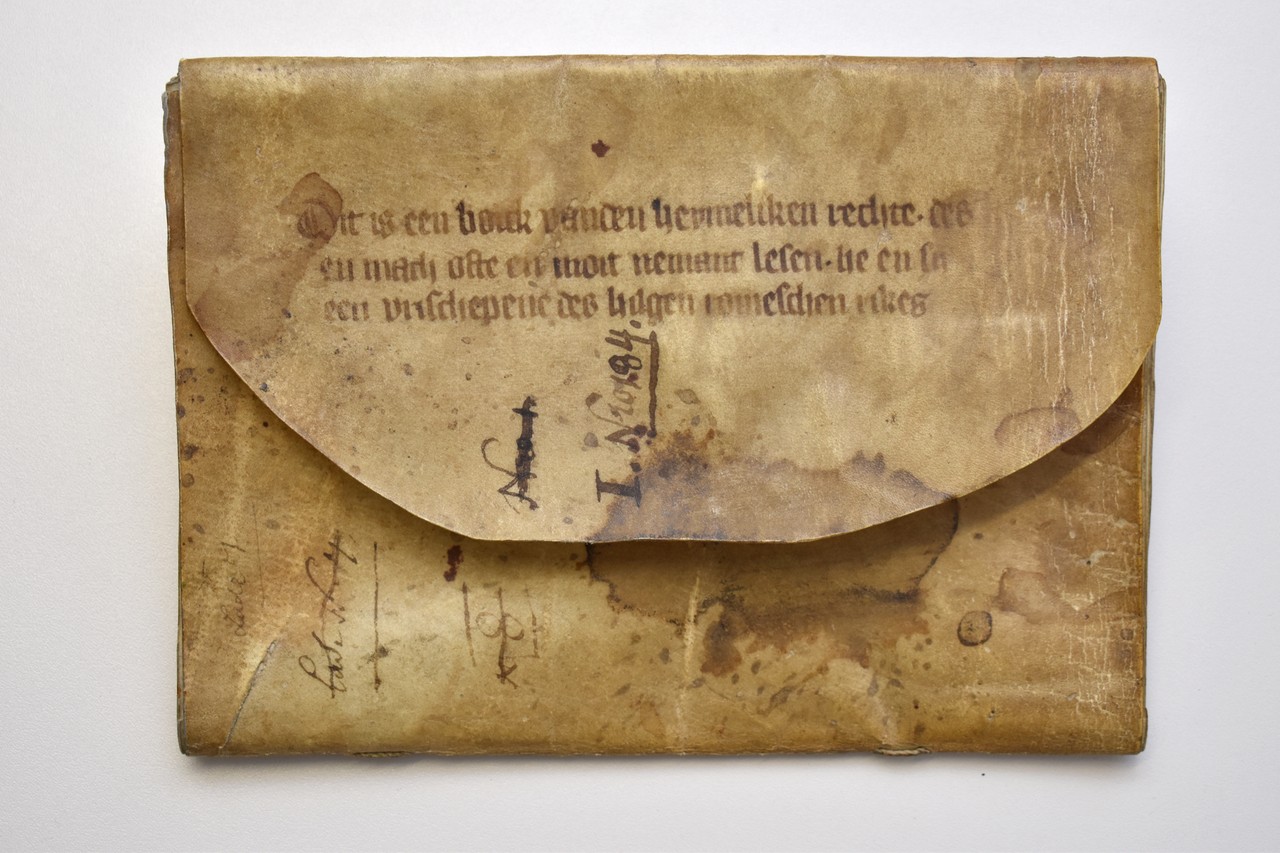 Dit is een boick vanden heymeliken rechte. des
en mach ofte en moit nemant lesen. he en sy
een vrischepene des hilgen romeschen rikes
I. Nro 184.